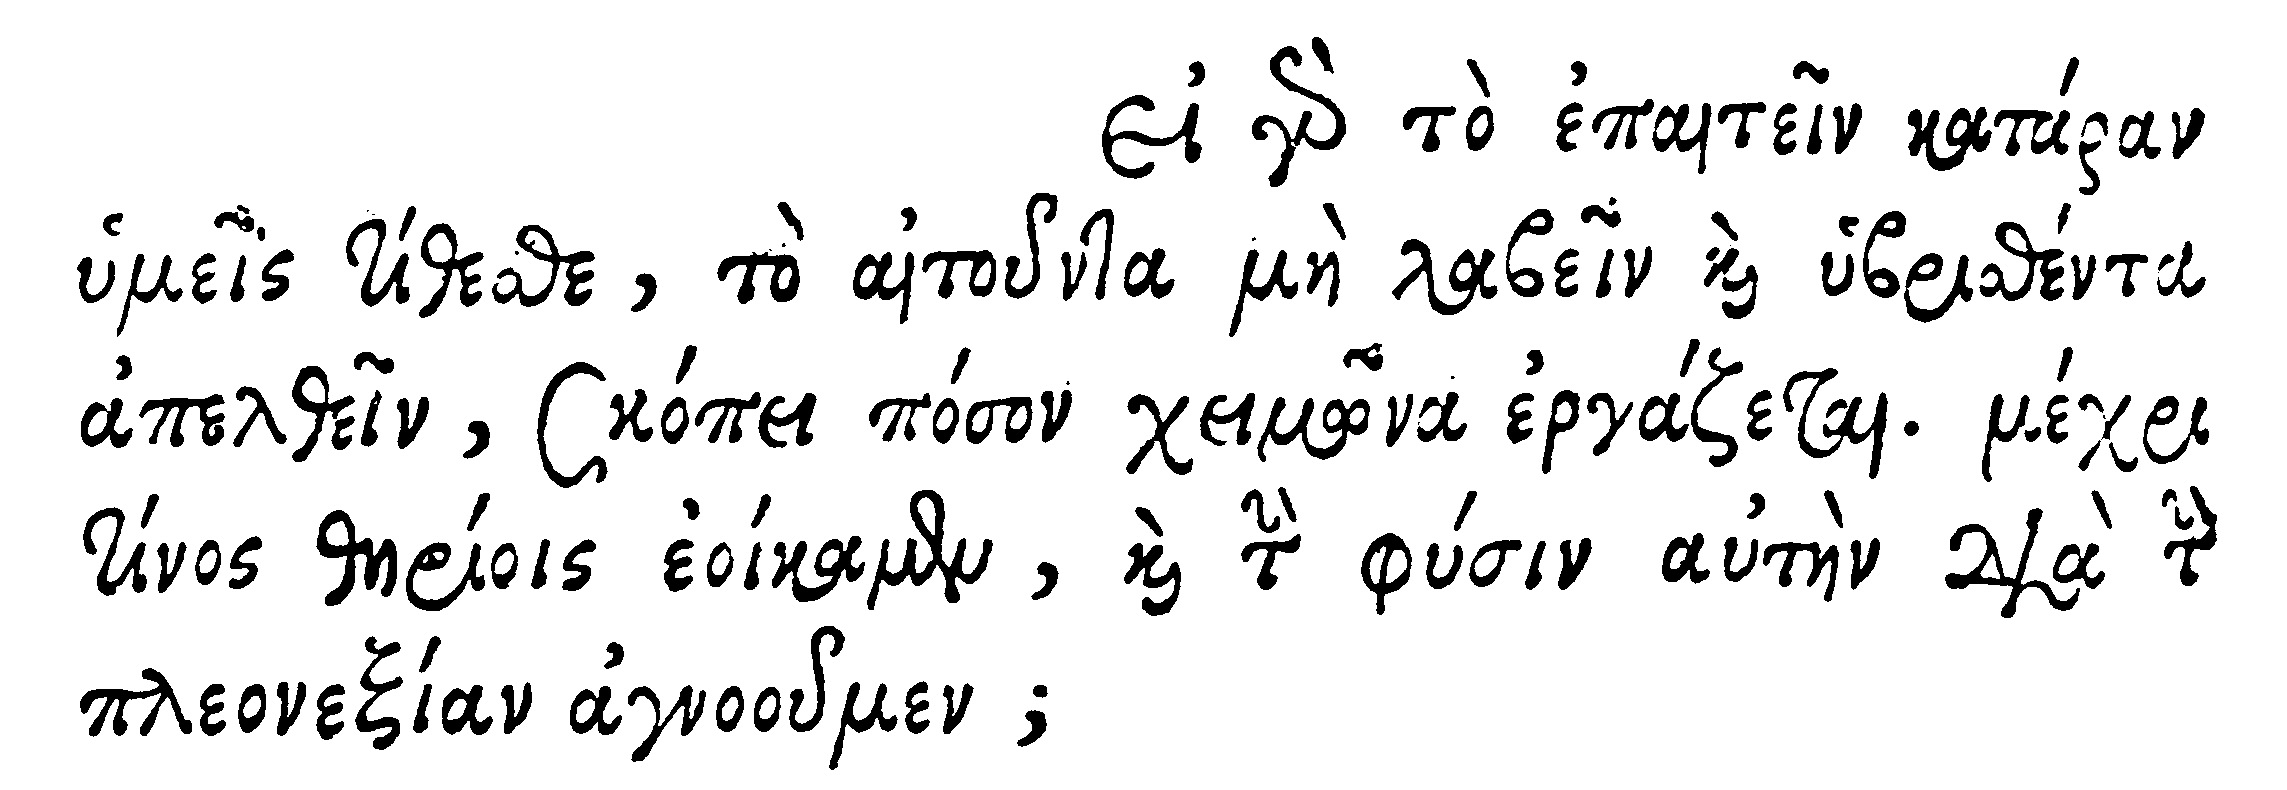 Εἰ γὰρ τὸ ἐπαιτεῖν κατάραν
ὑμεῖς τίθεσθε, τὸ αἰτοῦντα μὴ λαβεῖν καὶ ὑβρισθέντα
ἀπελθεῖν, σκόπει πόσον χειμῶνα ἐργάζεται. μέχρι
τίνος θηρίοις ἐοίκαμεν, καὶ τὴν φύσιν αὐτὴν διὰ τὴν
πλεονεξίαν ἀγνοοῦμεν ;